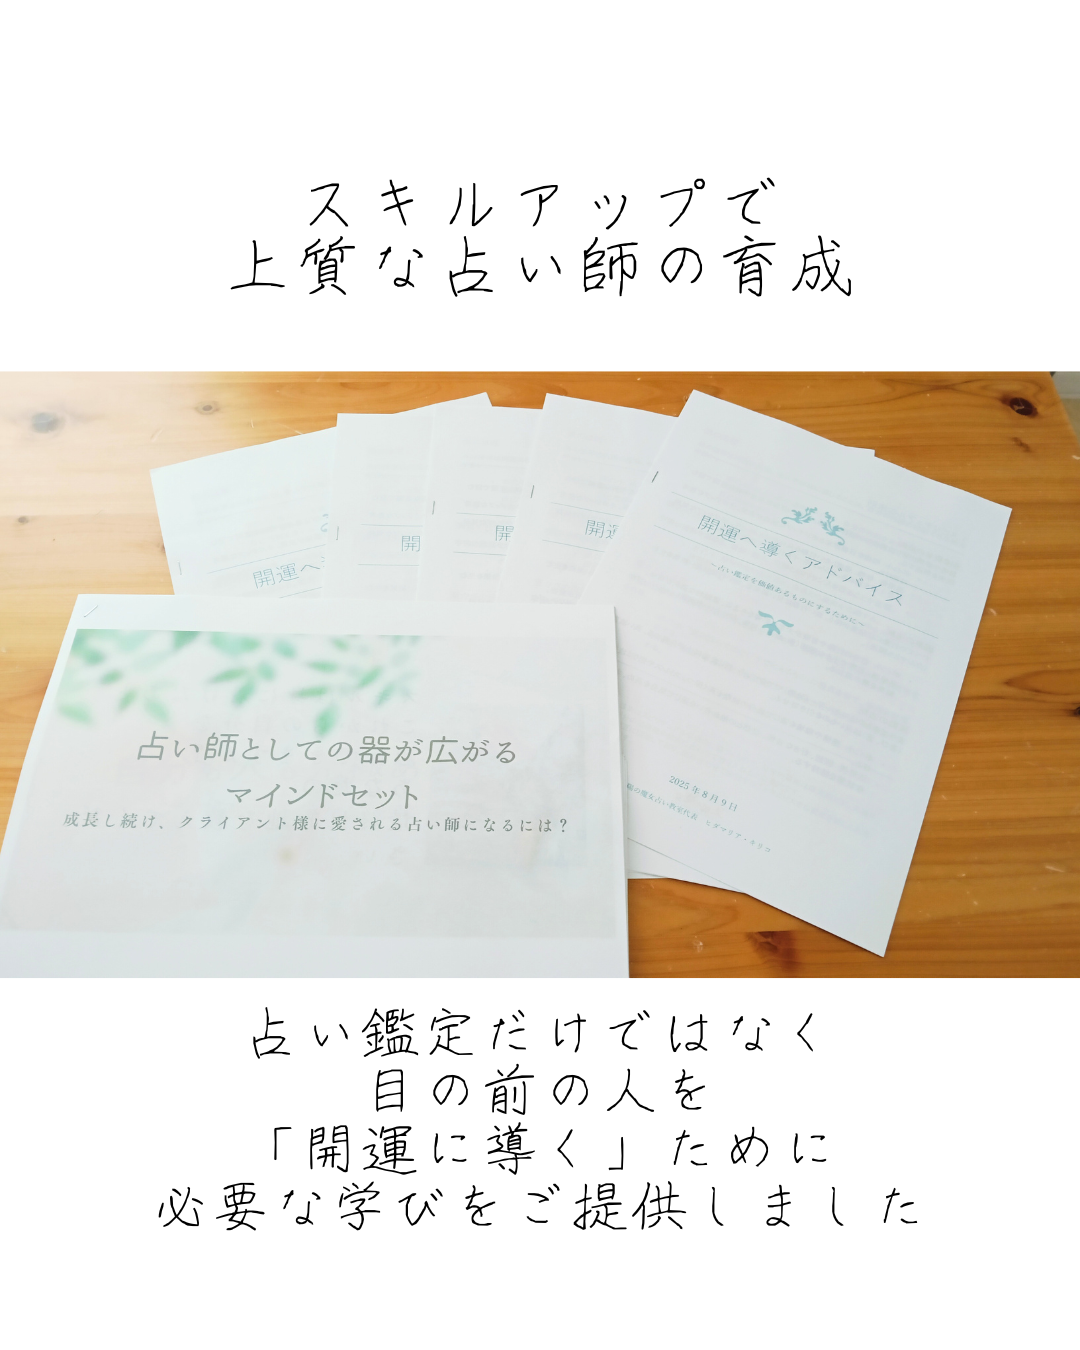 スキルアップで
上質な占い師の育成
開運へ
開
開
開運
開運へ導くアドバイス
～占い鑑定を価値あるものにするために～
2025年8月9日
占い師としての器が広がる
マインドセット
成長し続け、クライアント様に愛される占い師になるには？
占い鑑定だけではなく
目の前の人を
「開運に導く」ために
必要な学びをご提供しました